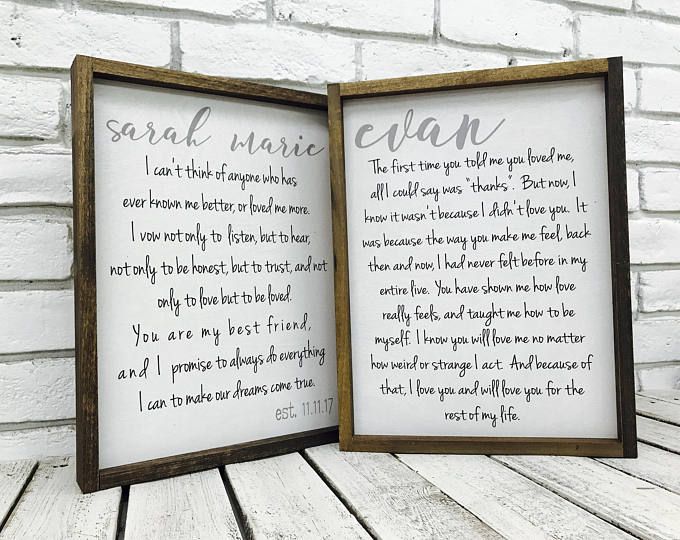 sarah marie
I can't think of anyone who has
ever known me better, or loved me more.
I vow not only to listen, but to hear,
not only to be honest, but to trust, and not
only to love but to be loved.
You are my best friend,
and I promise to always do everything
I can to make our dreams come true.
est. 11.11.17
evan
The first time you told me you loved me,
all I could say was "thanks". But now, I
know it wasn't because I didn't love you. It
was because the way you make me feel, back
then and now, I had never felt before in my
entire live. You have shown me how love
really feels, and taught me how to be
myself. I know you will love me no matter
how weird or strange I act. And because of
that, I love you and will love you for the
rest of my life.